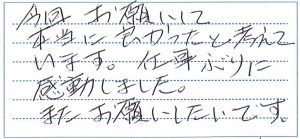 今回 お願いして
本当に良かったと考えて
います。仕事ぶりに
感動しました。
またお願いしたいです。